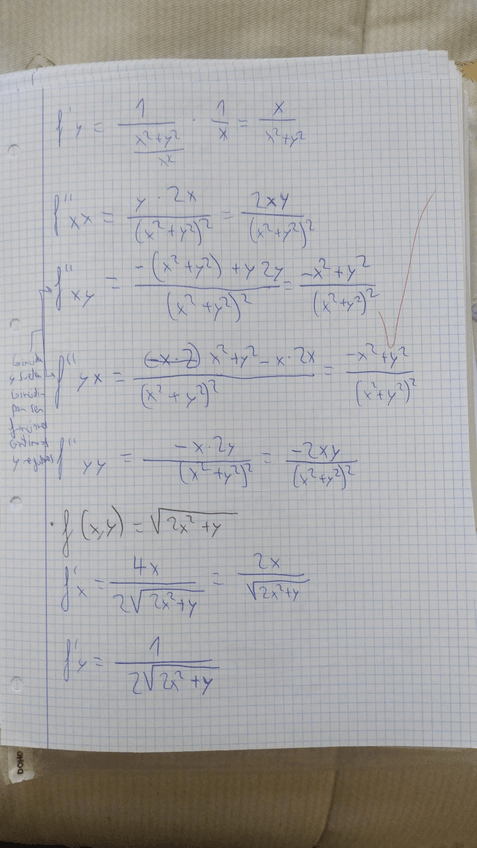 f'y = 1/((x²+y²)/x²) · 1/x = x/(x²+y²)
f''xx = (y · 2x)/(x²+y²)² = 2xy/(x²+y²)²
f''xy = (-(x²+y²) + y 2y)/(x²+y²)² = (-x²+y²)/(x²+y²)²
f''yx = (x²+y² - x · 2x)/(x²+y²)² = (-x²+y²)/(x²+y²)²
f''yy = (-x · 2y)/(x²+y²)² = (-2xy)/(x²+y²)²
y
por ser
y
· f(x,y) = √(2x²+y)
f'x = 4x/(2√(2x²+y)) = 2x/√(2x²+y)
f'y = 1/(2√(2x²+y))
DOHE